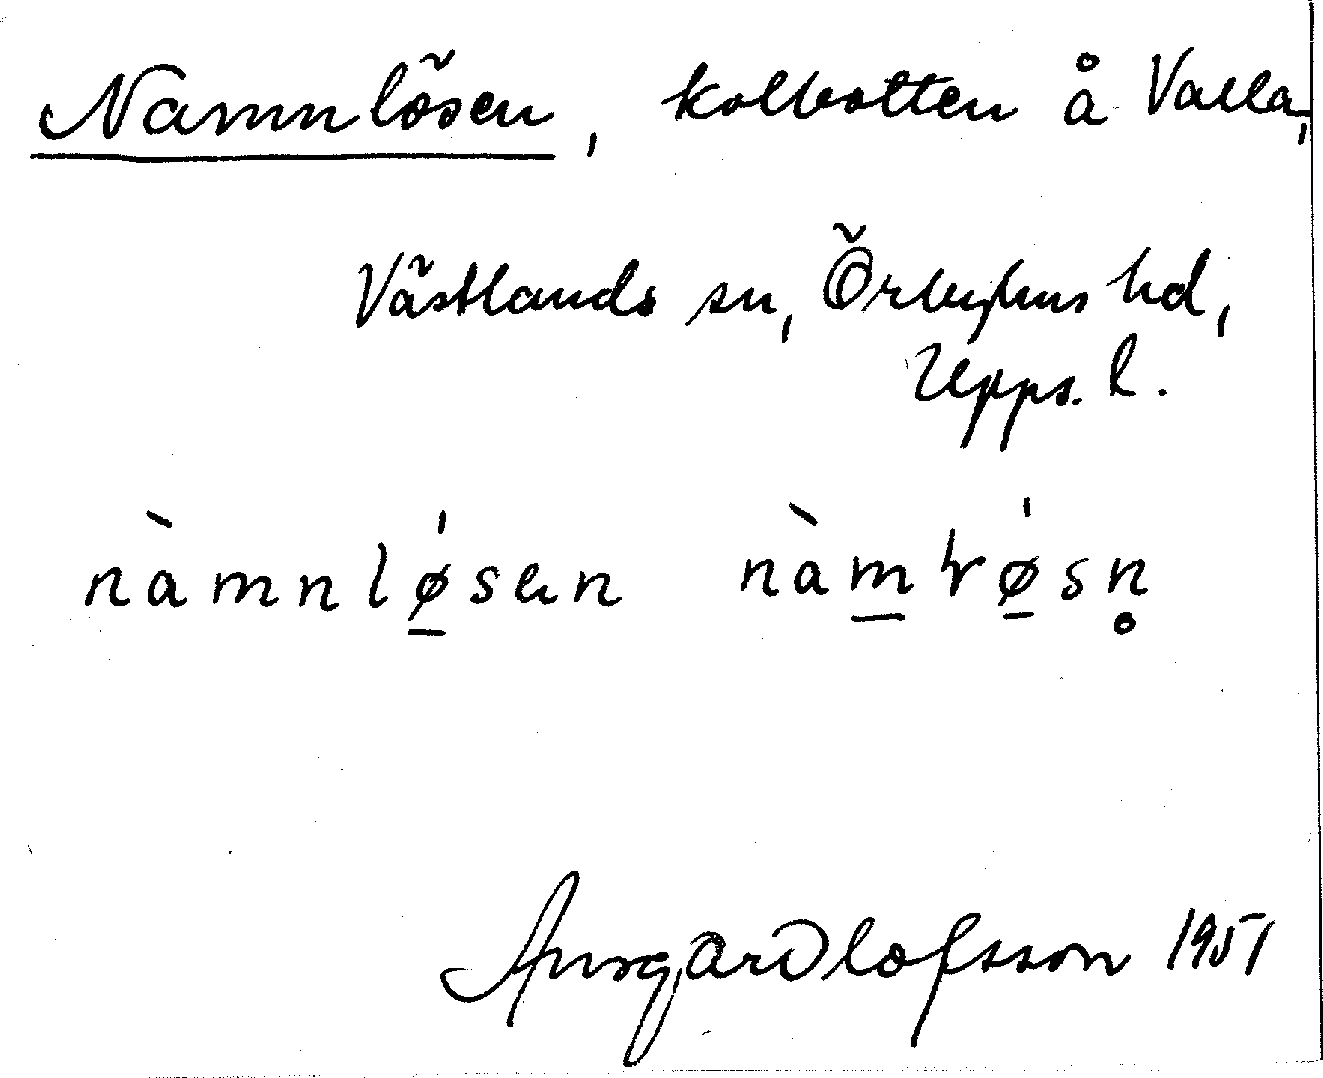 Namnlösen, kolbotten å Valla,
Västlands sn, Örbyhus hd,
Upps. l.
nàmnlǿ̱sen nàm̱ɽǿ̱sn̥
Ansgar Olofsson 1951